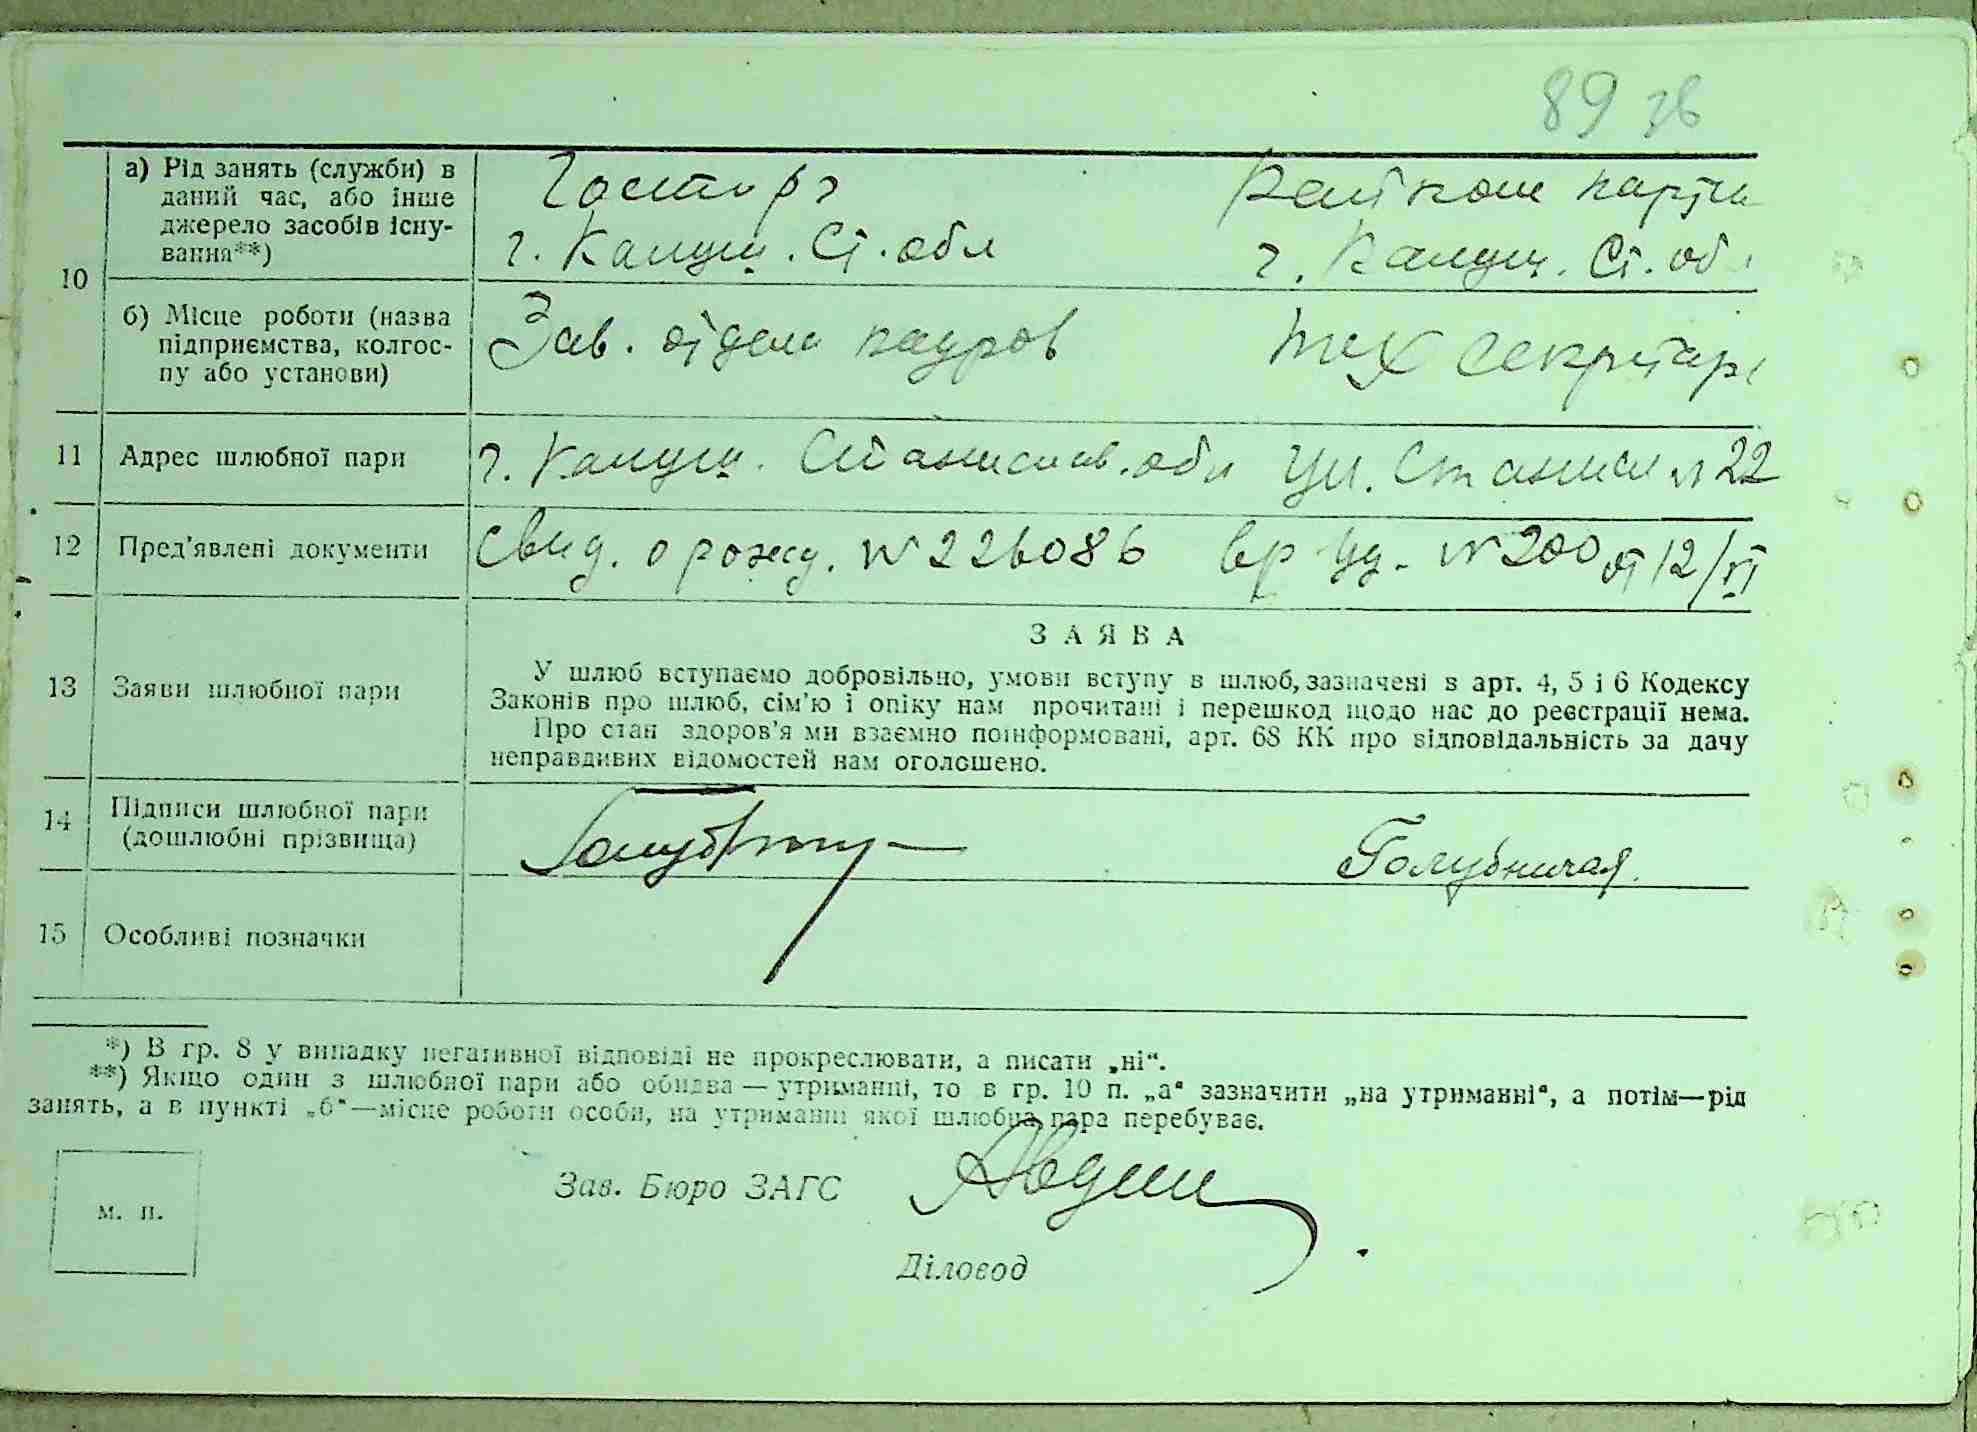 89 зв
10
а) Рід занять (служби) в
даний час, або інше
джерело засобів існу-
вання**)
Госторг
г. Калуш. Ст. обл
Райком партии
г. Калуш. Ст. обл
б) Місце роботи (назва
підприємства, колгос-
пу або установи)
Зав. отдела кадров
тех секретарь
11 Адрес шлюбної пари
г. Калуш. Станислав. обл ул. Станисл №22
12 Пред'явлені документи
Свид. о рожд. №226086 вр уд. №200 от 12/VI
13 Заяви шлюбної пари
ЗАЯВА
У шлюб вступаємо добровільно, умови вступу в шлюб, зазначені в арт. 4, 5 і 6 Кодексу
Законів про шлюб, сім'ю і опіку нам прочитані і перешкод щодо нас до реєстрації нема.
Про стан здоров'я ми взаємно поінформовані, арт. 68 КК про відповідальність за дачу
неправдивих відомостей нам оголошено.
14 Підписи шлюбної пари
(дошлюбні прізвища)
Голубничая.
15 Особливі позначки
*) В гр. 8 у випадку негативної відповіді не прокреслювати, а писати „ні“.
**) Якщо один з шлюбної пари або обидва — утриманці, то в гр. 10 п. „а“ зазначити „на утриманні“, а потім—рід
занять, а в пункті „б“—місце роботи особи, на утриманні якої шлюбна пара перебуває.
м. п.
Зав. Бюро ЗАГС
Діловод